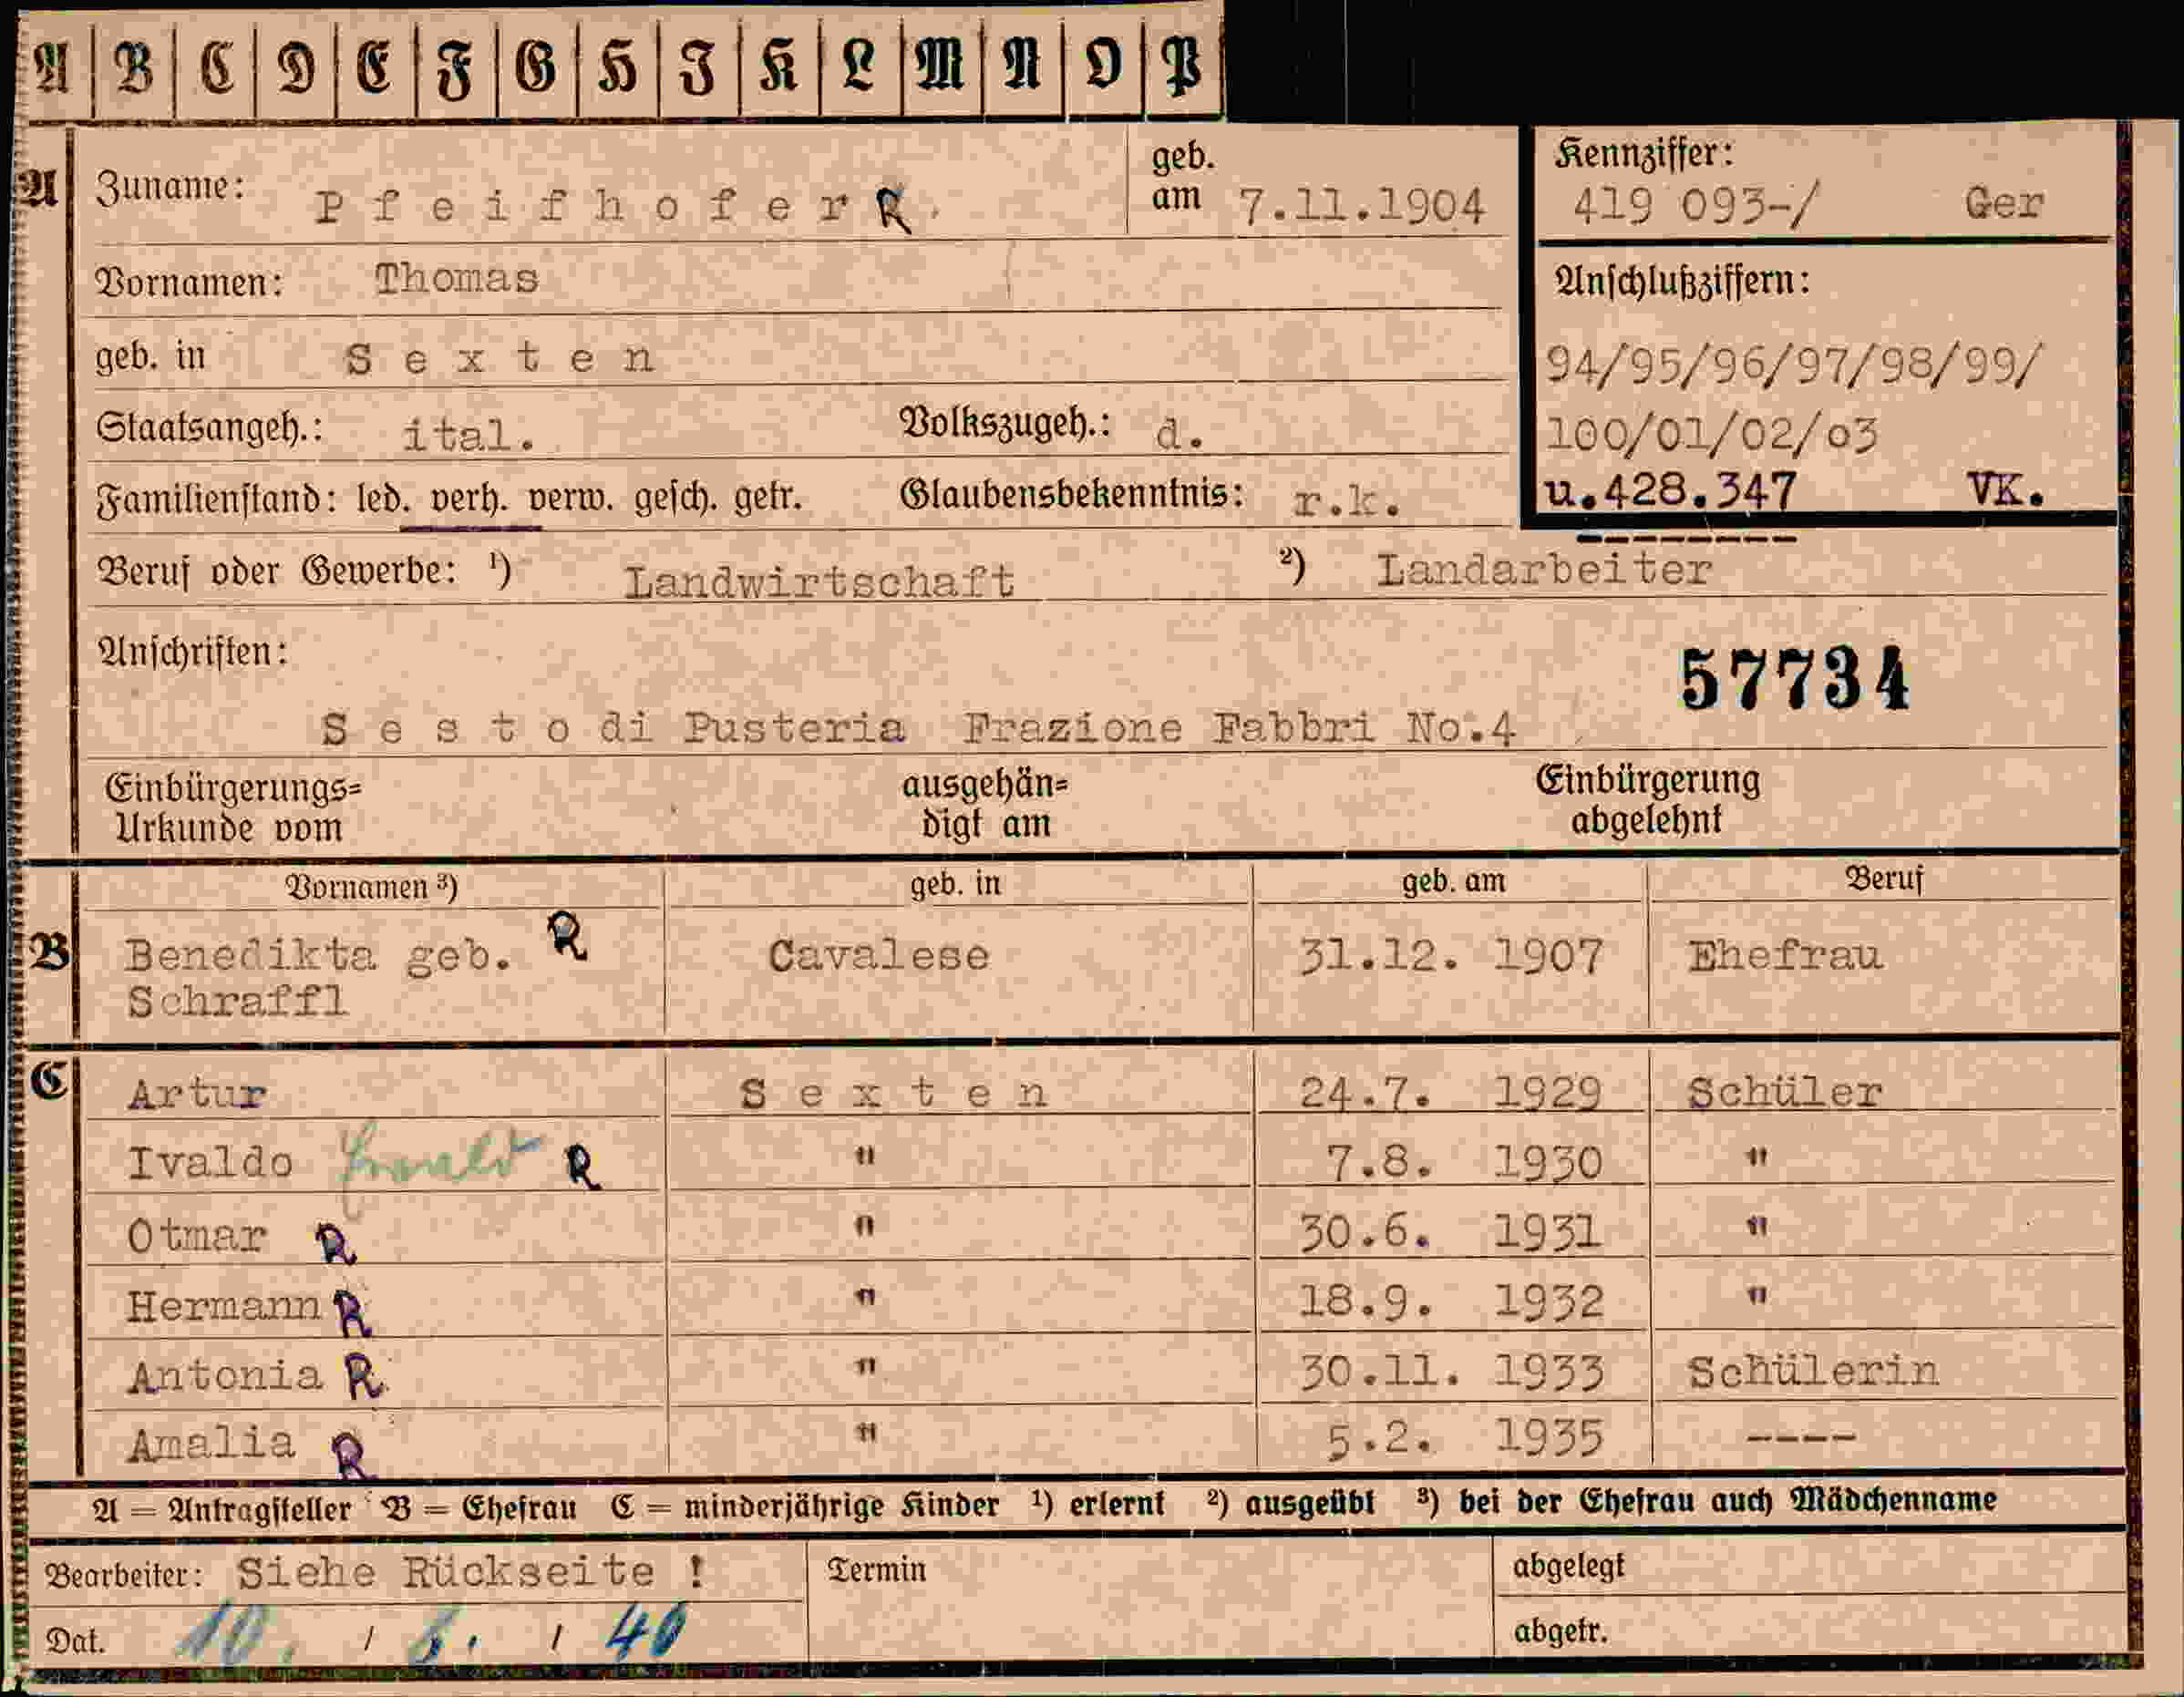 A B C D E F G H I K L M N O P
A Zuname: Pfeifhofer R. geb. am 7.11.1904
Kennziffer:
419 093-/ Ger
Vornamen: Thomas
Anschlußziffern:
geb. in Sexten
94/95/96/97/98/99/
Staatsangeh.: ital. Volkszugeh.: d.
100/01/02/o3
Familienstand: led. verh. verw. gesch. getr. Glaubensbekenntnis: r.k.
u.428.347 VK.
Beruf oder Gewerbe: ¹) Landwirtschaft ²) Landarbeiter
Anschriften:
57734
Sesto di Pusteria Frazione Fabbri No.4
Einbürgerungs= ausgehän= Einbürgerung
Urkunde vom digt am abgelehnt
Vornamen ³) geb. in geb. am Beruf
B Benedikta geb. R Cavalese 31.12. 1907 Ehefrau
Schraffl
C Artur Sexten 24.7. 1929 Schüler
Ivaldo R " 7.8. 1930 "
Otmar R " 30.6. 1931 "
Hermann R " 18.9. 1932 "
Antonia R " 30.11. 1933 Schülerin
Amalia R " 5.2. 1935 ----
A = Antragsteller B = Ehefrau C = minderjährige Kinder ¹) erlernt ²) ausgeübt ³) bei der Ehefrau auch Mädchenname
Bearbeiter: Siehe Rückseite ! Termin abgelegt
Dat. 10. / / 40 abgetr.